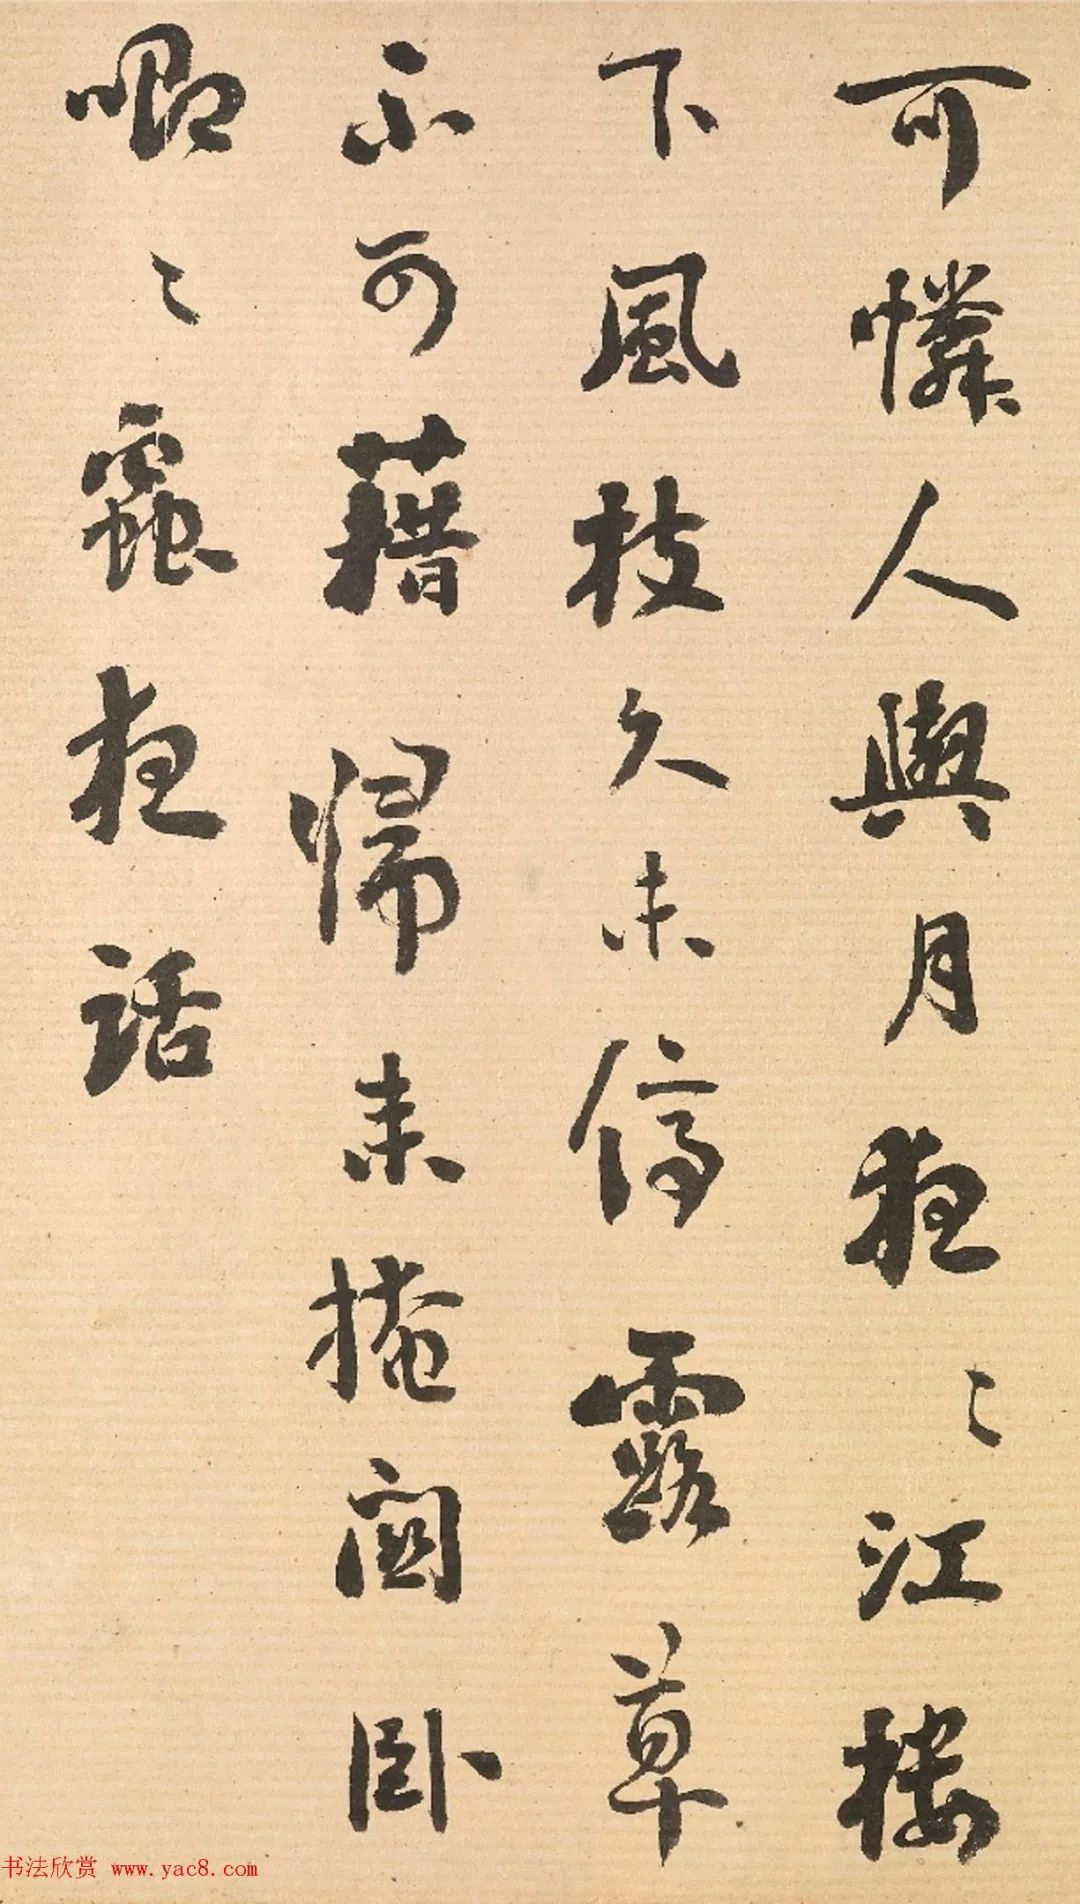 可憐人與月夜〻江樓
下風枝久未停露草
不可藉歸来掩關卧
唧〻蟲夜話
书法欣赏 www.yac8.com